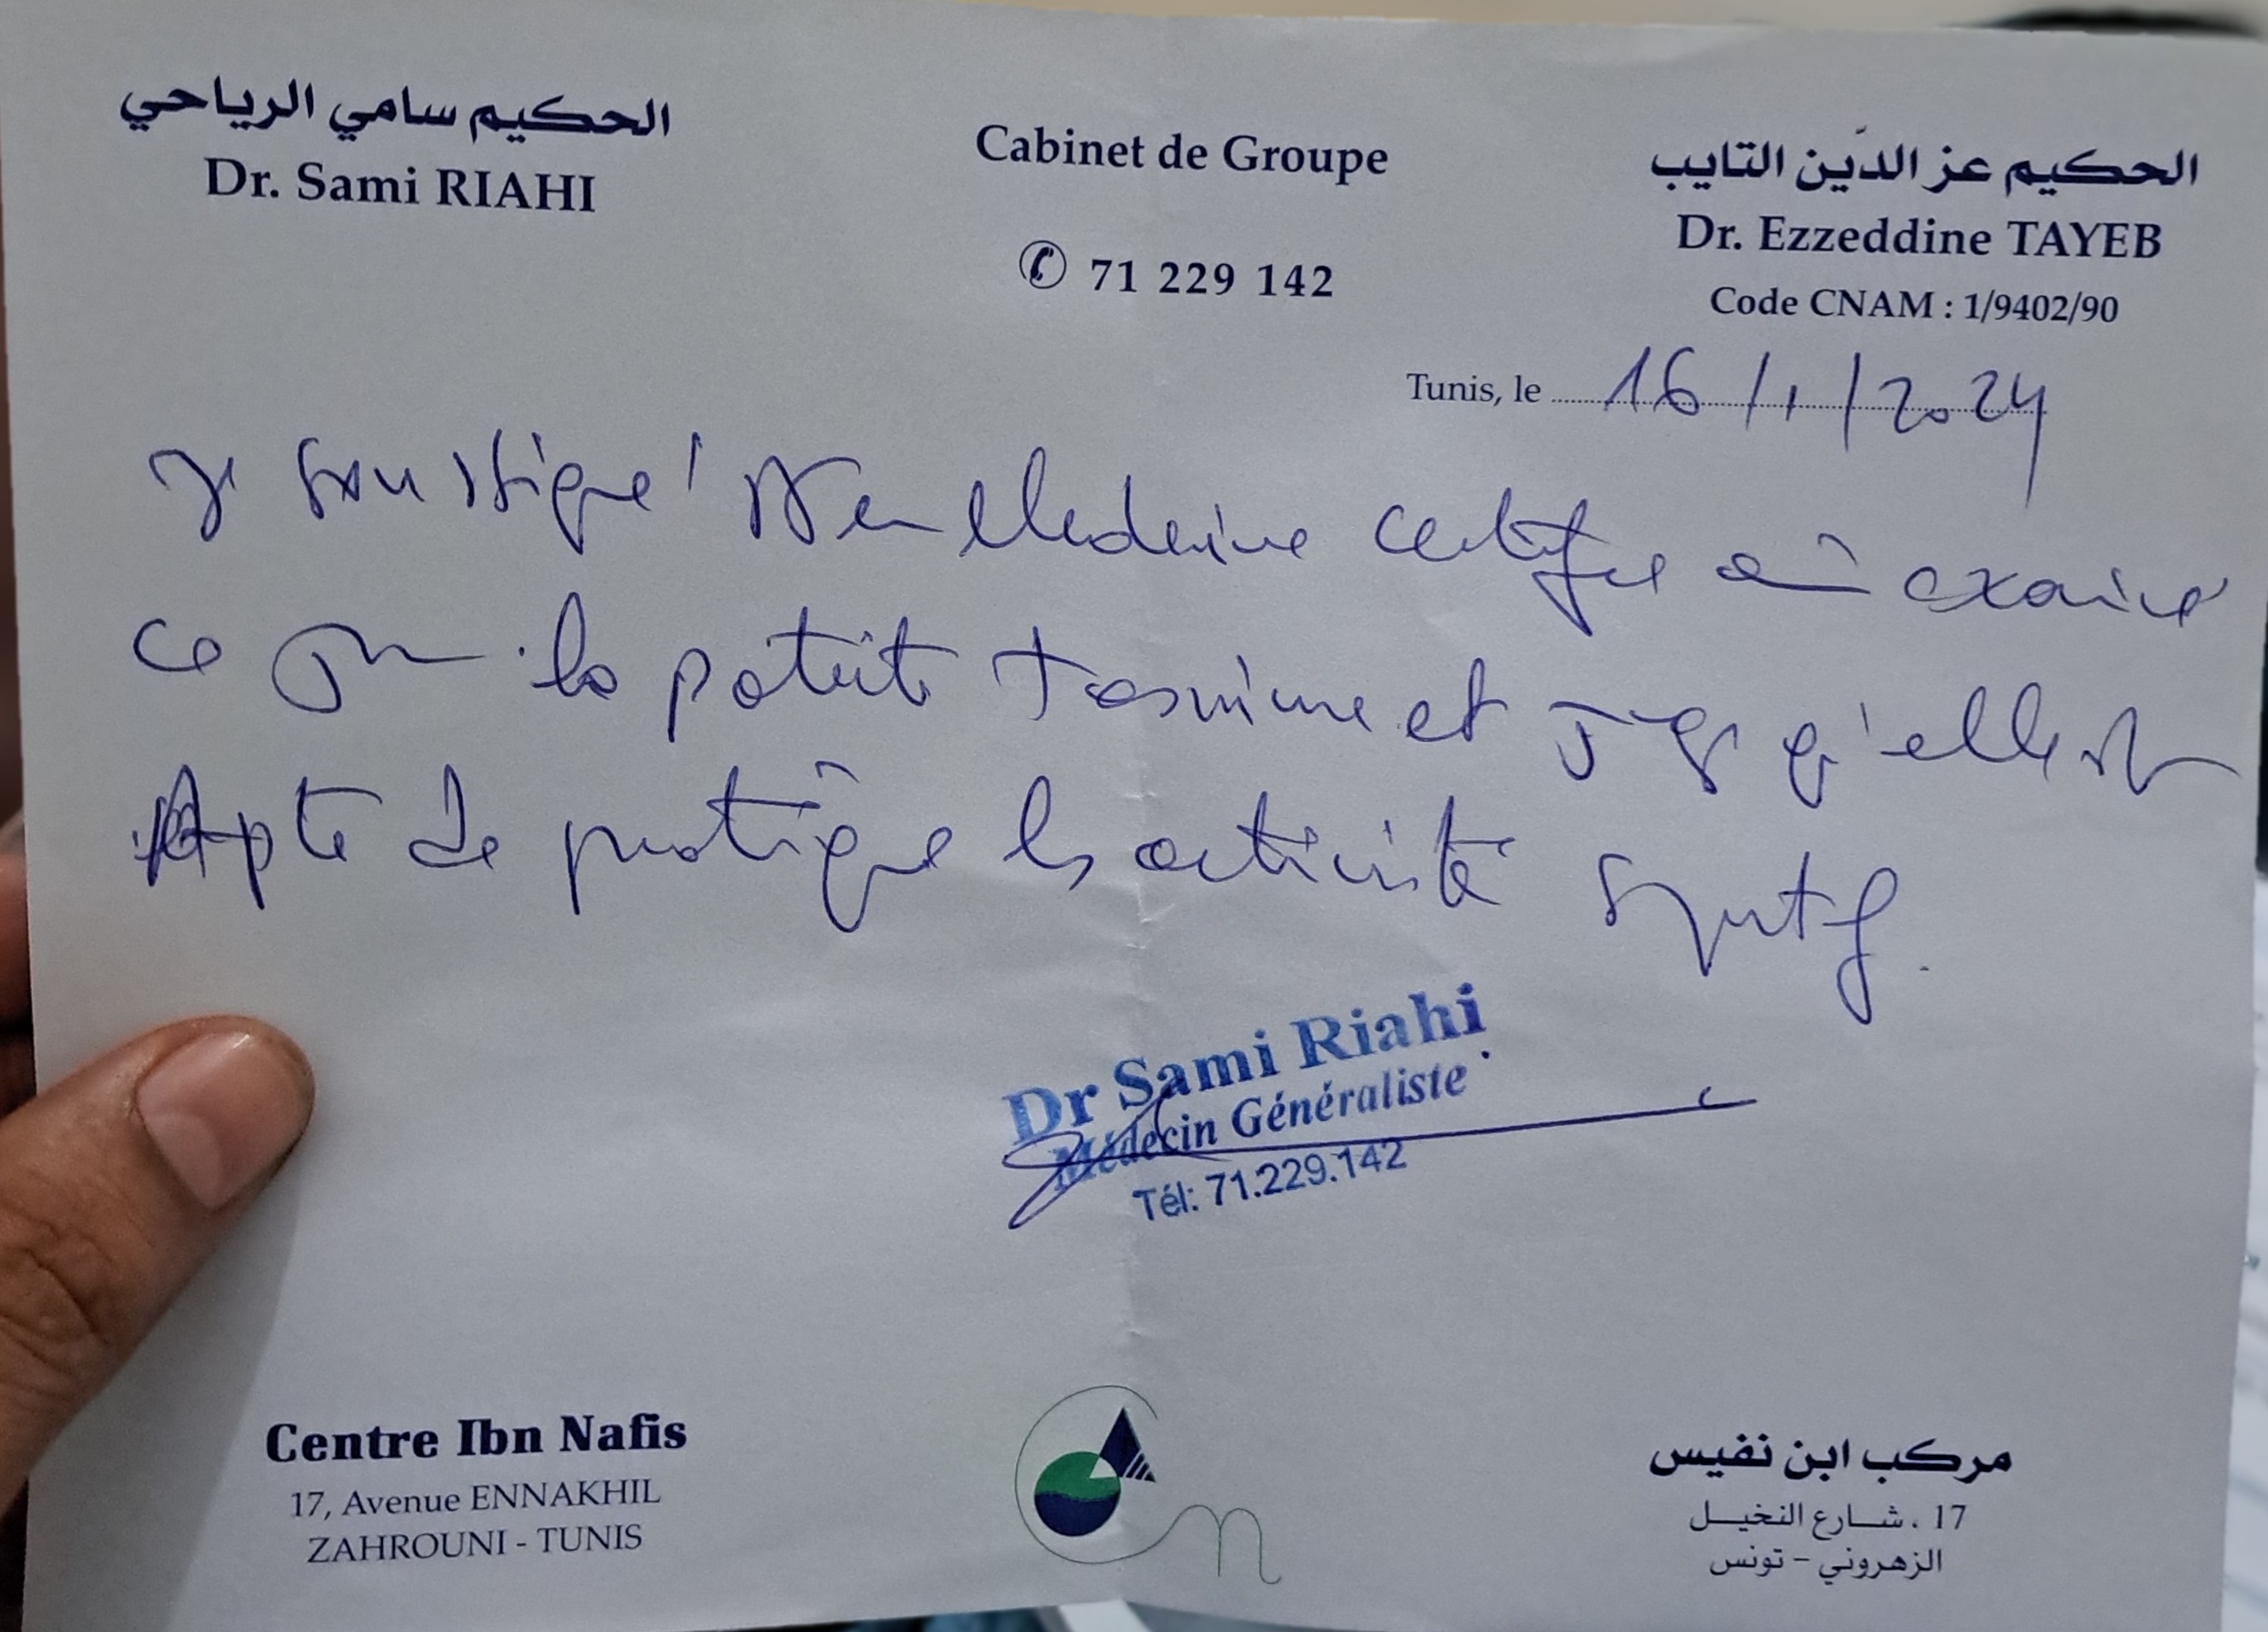 الحكيم سامي الرياحي
Dr. Sami RIAHI
Cabinet de Groupe
✆ 71 229 142
الحكيم عز الدّين التايب
Dr. Ezzeddine TAYEB
Code CNAM : 1/9402/90
Tunis, le 16/1/2024
Je soussigné Dr en Médecine certifie avoir examiné
ce jour la patiente Tasnime et juge qu'elle est
Apte de pratique les activité sportif.
Dr Sami Riahi
Médecin Généraliste
Tél: 71.229.142
Centre Ibn Nafis
17, Avenue ENNAKHIL
ZAHROUNI - TUNIS
مركب ابن نفيس
17 ، شارع النخيل
الزهروني - تونس